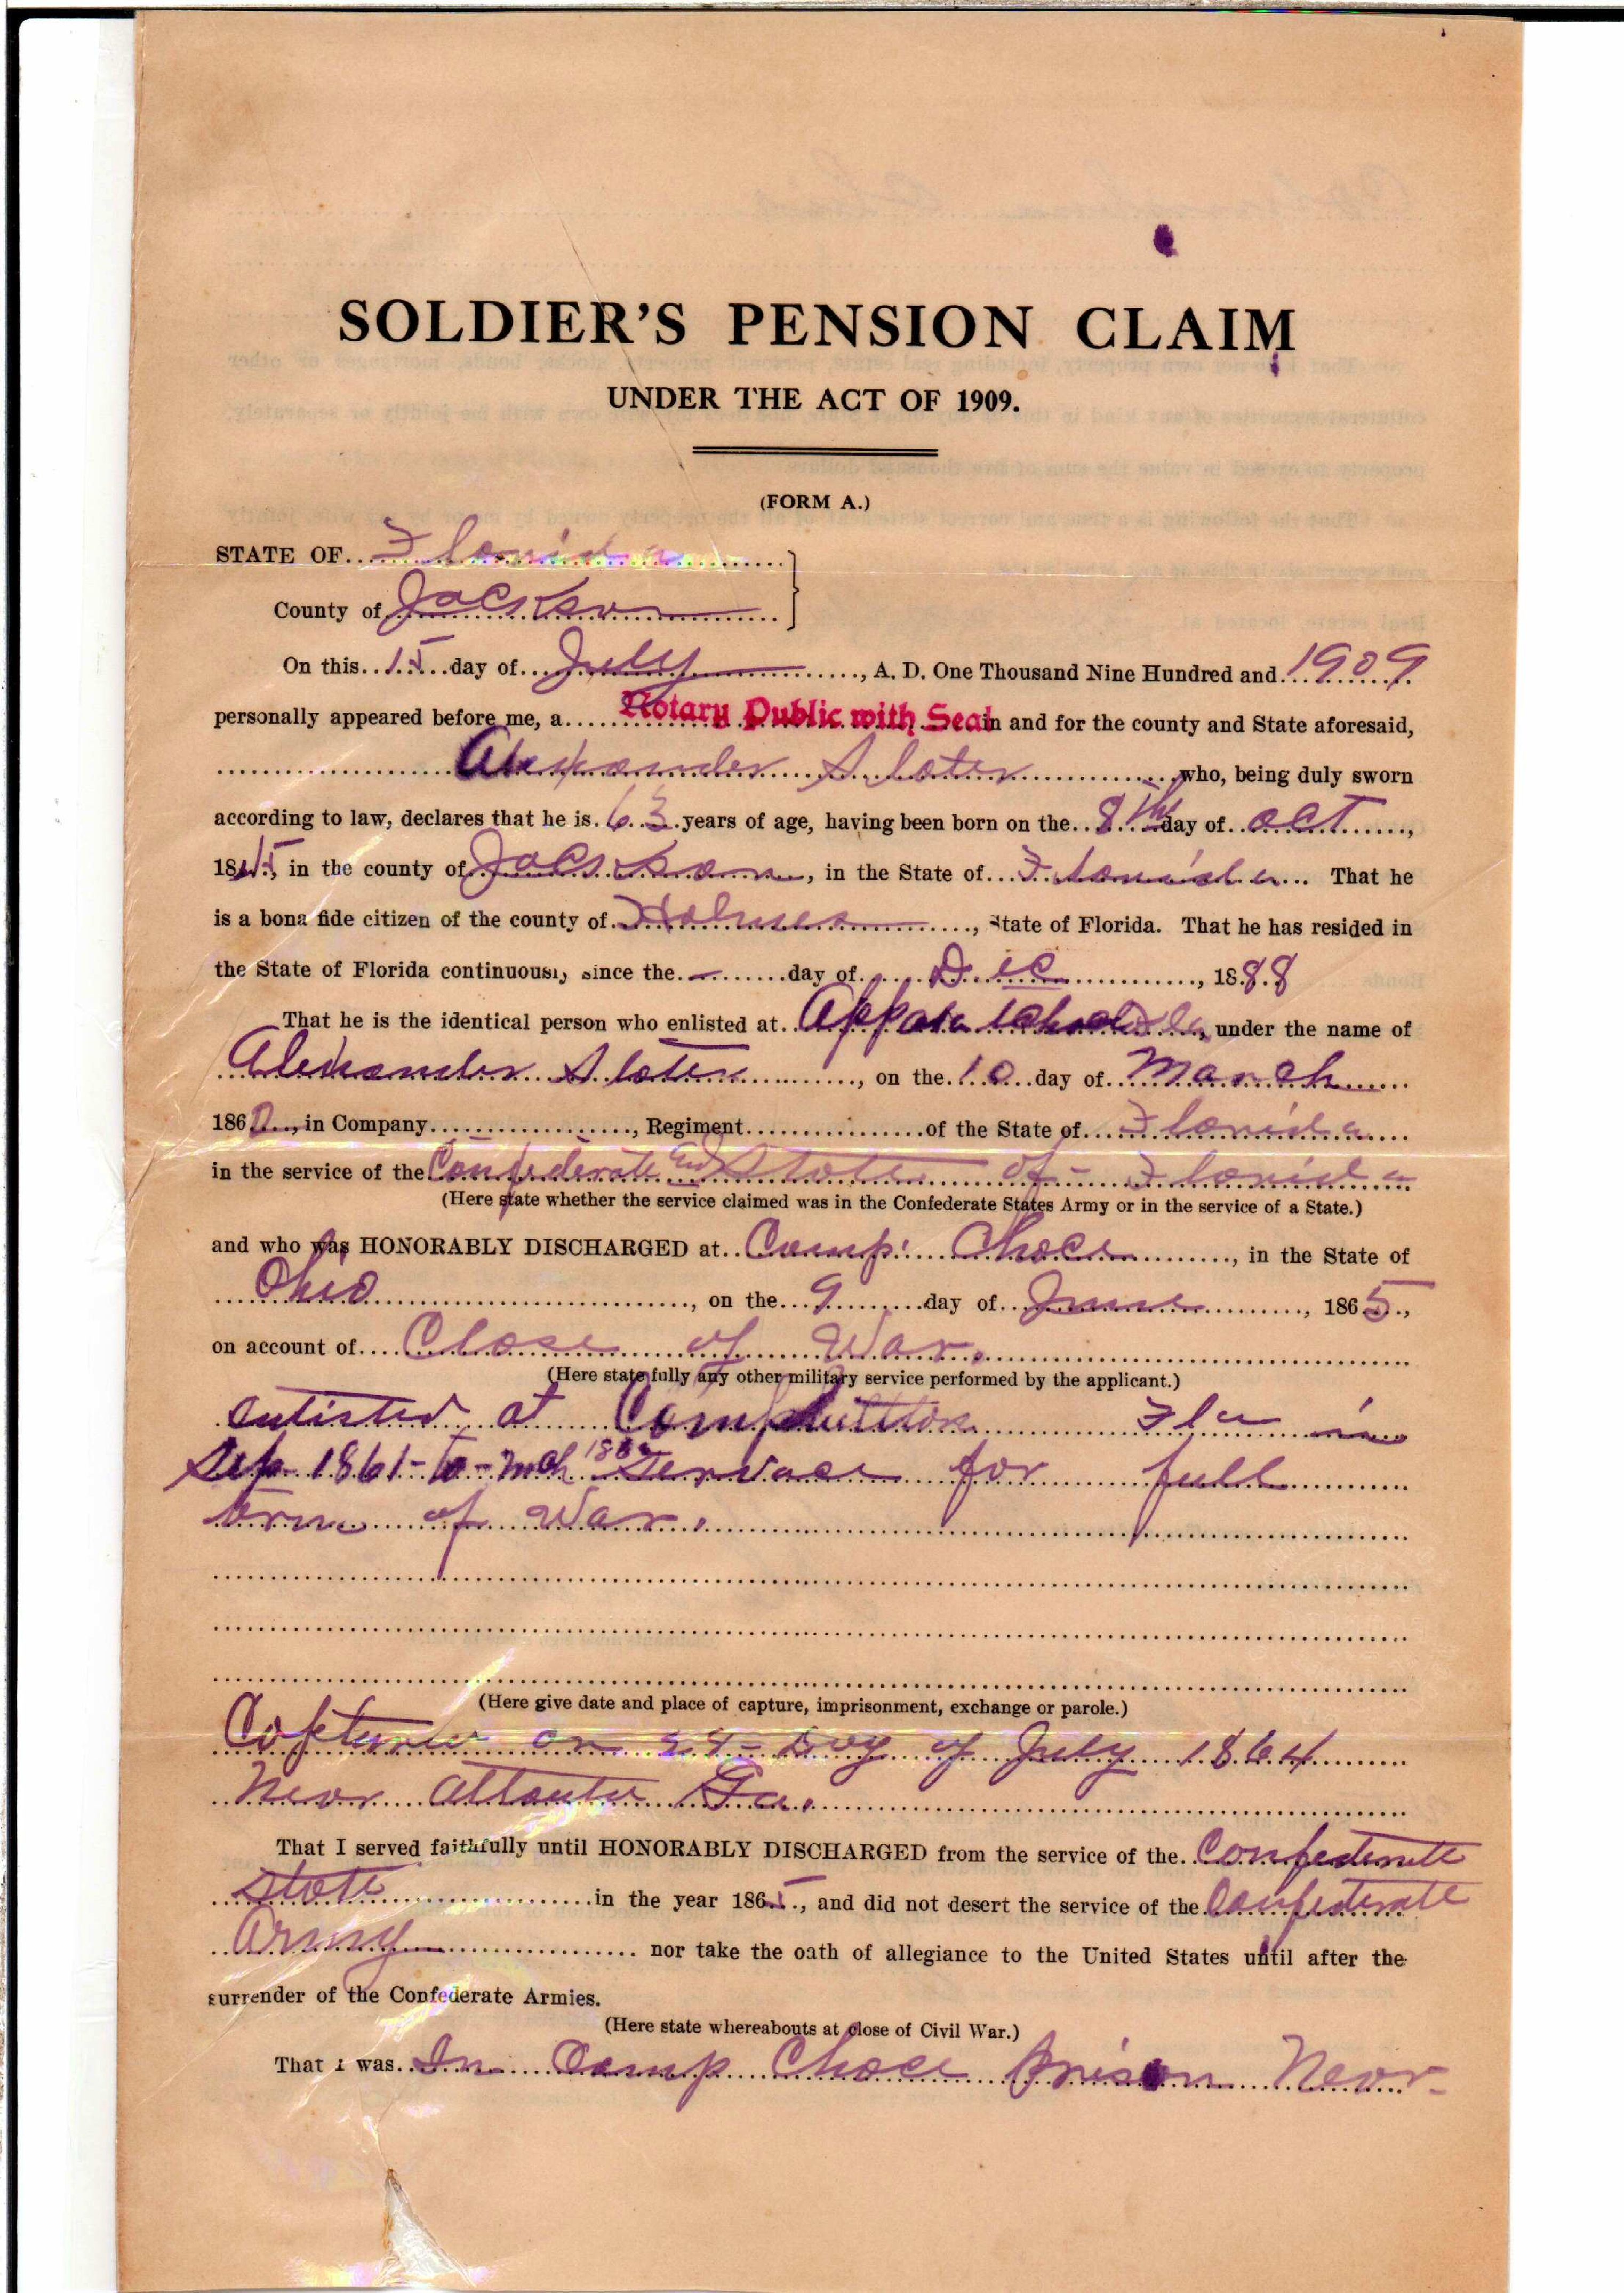 SOLDIER'S PENSION CLAIM
UNDER THE ACT OF 1909.
(FORM A.)
STATE OF Florida
County of Jackson
On this 15 day of July, A. D. One Thousand Nine Hundred and 1909
personally appeared before me, a Notary Public with Seal in and for the county and State aforesaid,
Alexander Slater who, being duly sworn
according to law, declares that he is 63 years of age, having been born on the 8th day of Oct,
1845, in the county of Jackson, in the State of Florida. That he
is a bona fide citizen of the county of Holmes, State of Florida. That he has resided in
the State of Florida continuously since the day of Dec, 1888
That he is the identical person who enlisted at, under the name of
Alexander Slater, on the 10 day of March
186, in Company, Regiment of the State of Florida
in the service of the Confederate End State of Florida
(Here state whether the service claimed was in the Confederate States Army or in the service of a State.)
and who was HONORABLY DISCHARGED at Camp Chace, in the State of
Ohio, on the 9 day of June, 1865,
on account of Close of War.
(Here state fully any other military service performed by the applicant.)
Enlisted at Fla in
Sep 1861 - to - Mch Servace for full
term of War.
(Here give date and place of capture, imprisonment, exchange or parole.)
Captured on Day of July 1864
Near Atlanta Ga.
That I served faithfully until HONORABLY DISCHARGED from the service of the Confederate
State in the year 1865, and did not desert the service of the Confederate
Army nor take the oath of allegiance to the United States until after the
surrender of the Confederate Armies.
(Here state whereabouts at close of Civil War.)
That I was In Camp Chace Prison Near